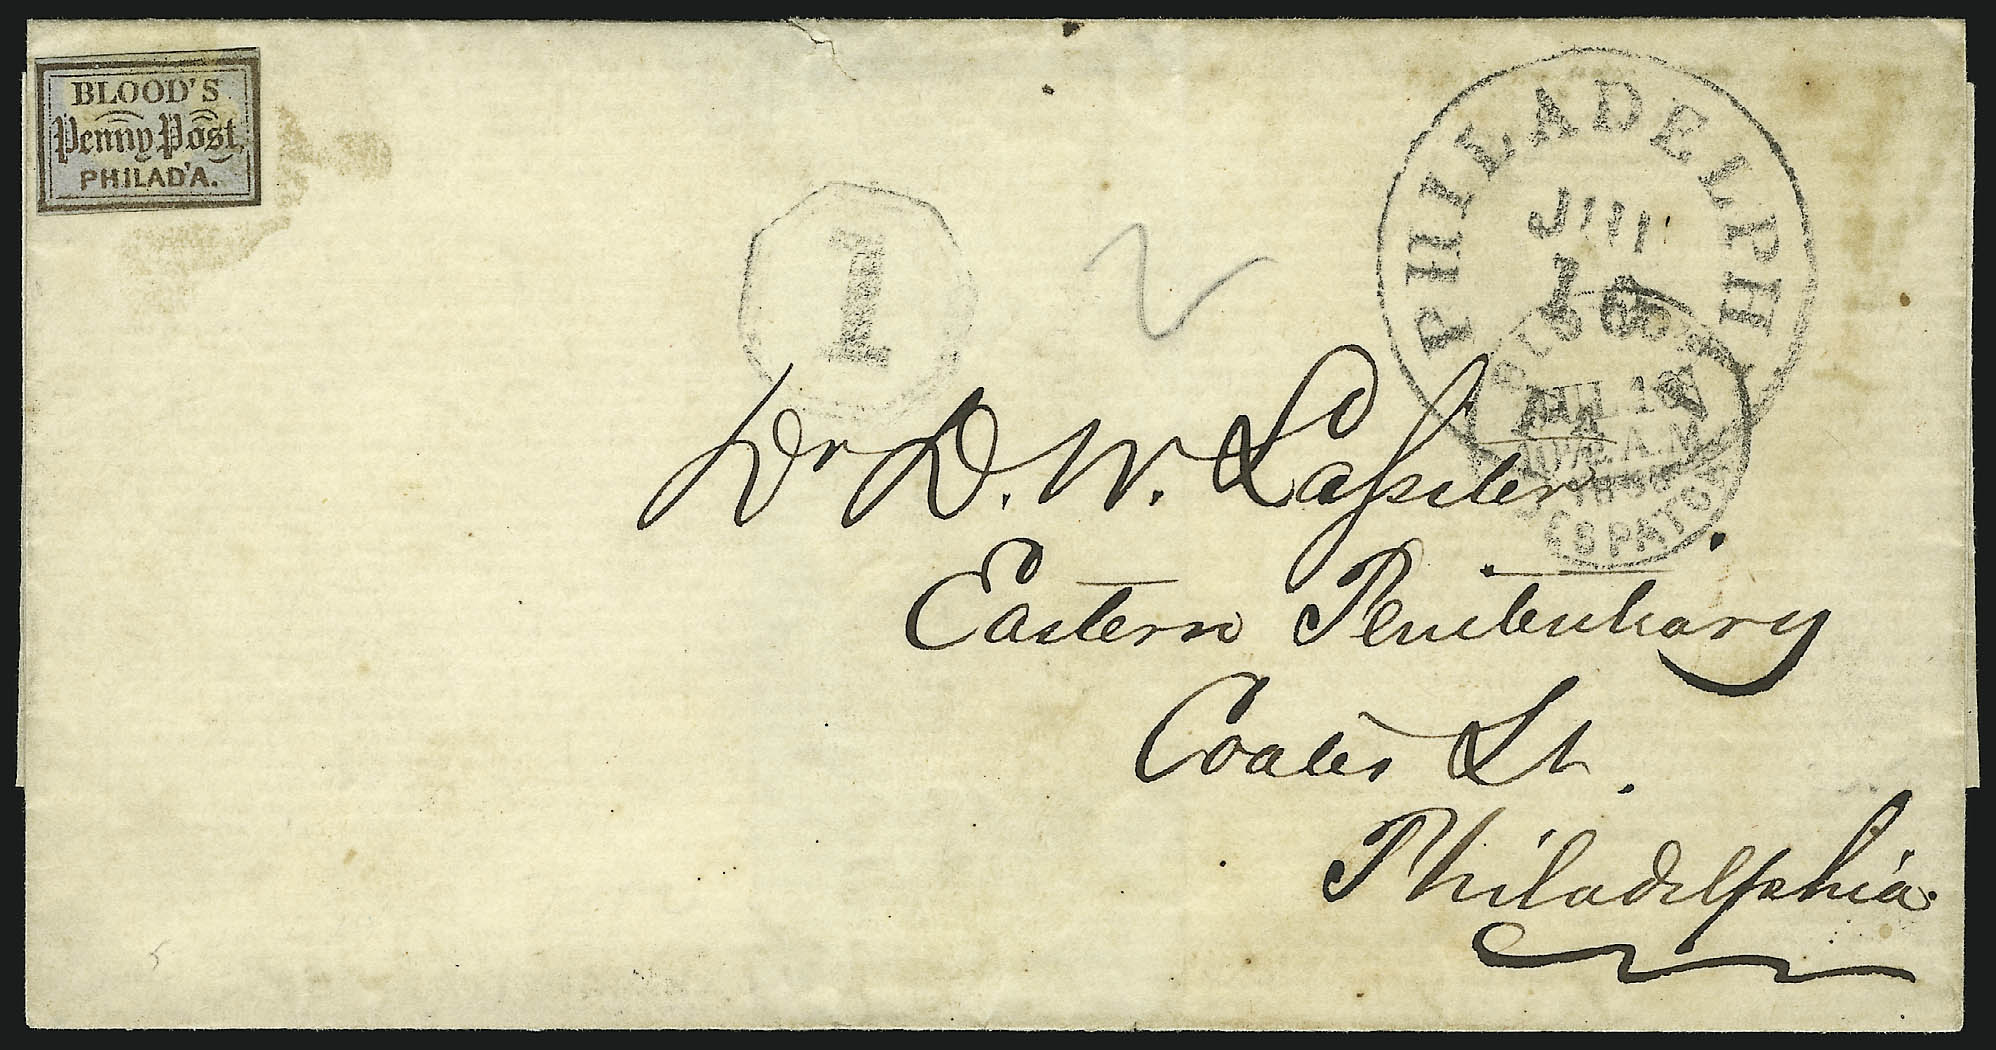 BLOOD'S
Penny Post,
PHILAD'A.
1
PHILADELPHIA
JUL
JUL 16
10½ A.M
DESPATCH
Dr D. W. Lassiter.
Eastern Penitentiary
Coates St.
Philadelphia.